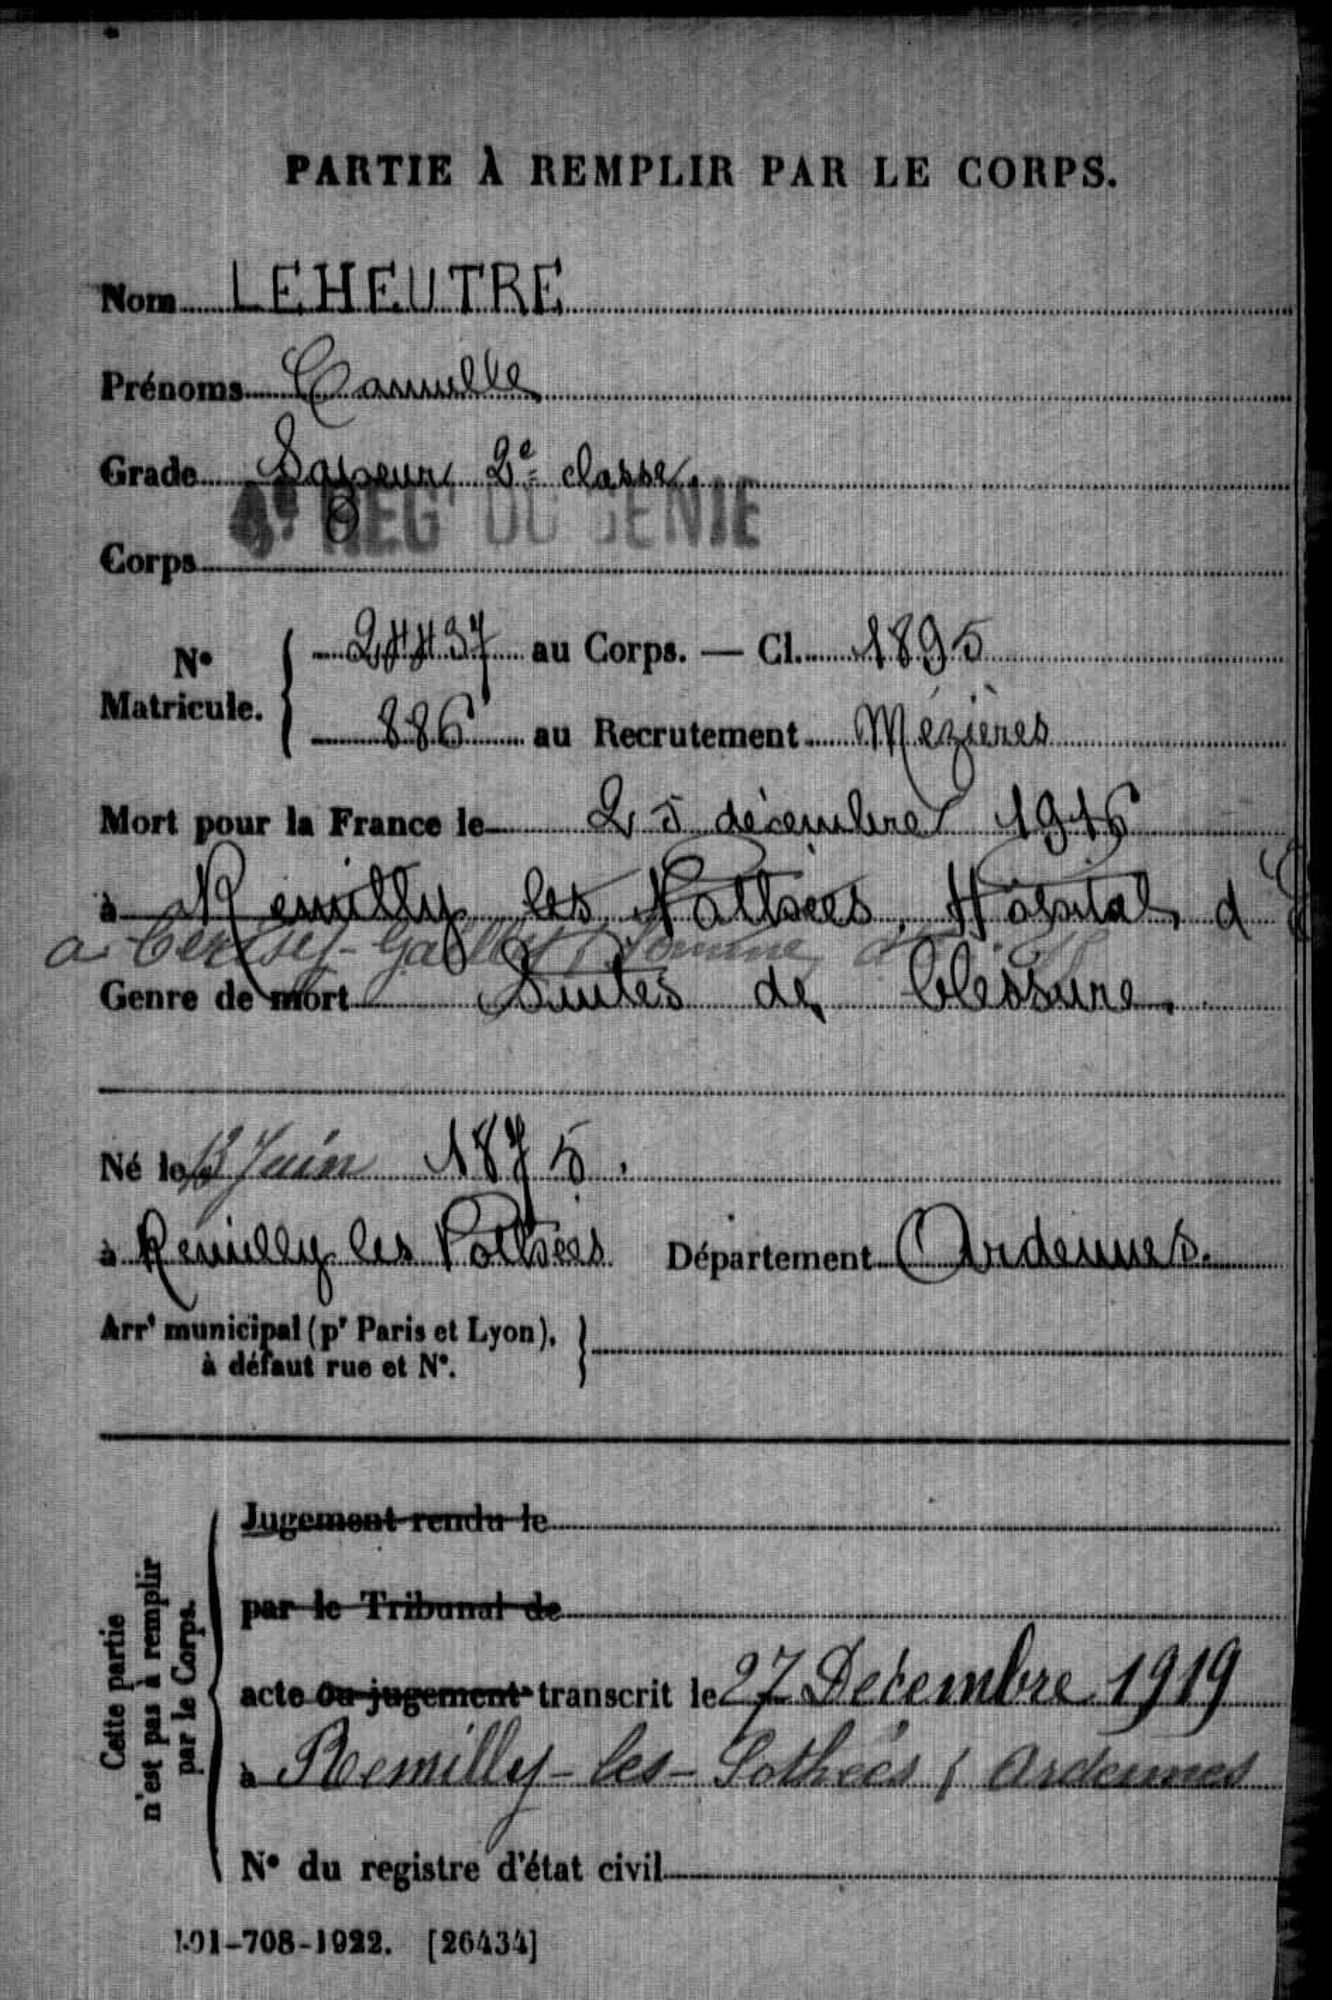 PARTIE À REMPLIR PAR LE CORPS.
Nom LEHEUTRE
Prénoms Camille
Grade Sapeur 2e classe.
8e REGt DU GENIE
Corps
No Matricule. 24437 au Corps. — Cl. 1895
886 au Recrutement Mézières
Mort pour la France le 25 décembre 1916
à Remilly les Pothées, Hôpital d
a Cerisy-Gailly (Somme)
Genre de mort Suites de blessure.
Né le 13 Juin 1875.
à Remilly les Pothées Département Ardennes.
Arrt municipal (pr Paris et Lyon),
à défaut rue et No.
Cette partie
n'est pas à remplir
par le Corps.
Jugement rendu le
par le Tribunal de
acte ou jugement transcrit le 27 Décembre 1919
à Remilly-les-Pothées (Ardennes
No du registre d'état civil
101-708-1922. [26434]